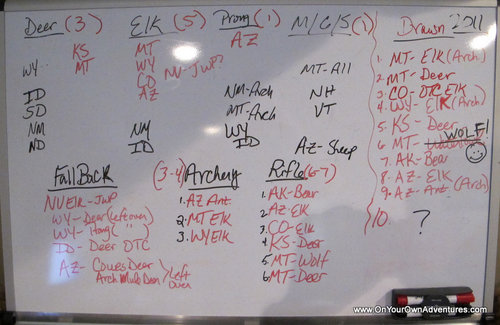 Deer (3)
KS
WY MT
ID
SD
NM
ND
Elk (5)
MT
WY
CO NV-JWP?
AZ
NM
ID
Prong (1)
AZ
NM-Arch
MT-Arch
WY
ID
M/G/S (1)
MT-All
NH
VT
AZ-Sheep
Drawn 2011
1. MT-Elk (Arch)
2. MT-Deer
3. CO-OTC Elk
4. WY-Elk (Arch)
5. KS-Deer
6. MT WOLF!
7. AK-Bear
8. AZ-Elk
9. AZ-Ant. (Arch)
10. ?
Fall Back
NV Elk-JWP
WY-Deer (leftover)
WY-Prong ( " )
ID-Deer OTC
AZ-Coues Deer
Arch Mule Deer
Left
Over
(3-4) Archery
1. AZ Ant
2. MT Elk
3. WY Elk
Rifle (6-7)
1. AK-Bear
2. AZ Elk
3. CO-Elk
4. KS-Deer
5. MT-Wolf
6. MT-Deer
www.OnYourOwnAdventures.com